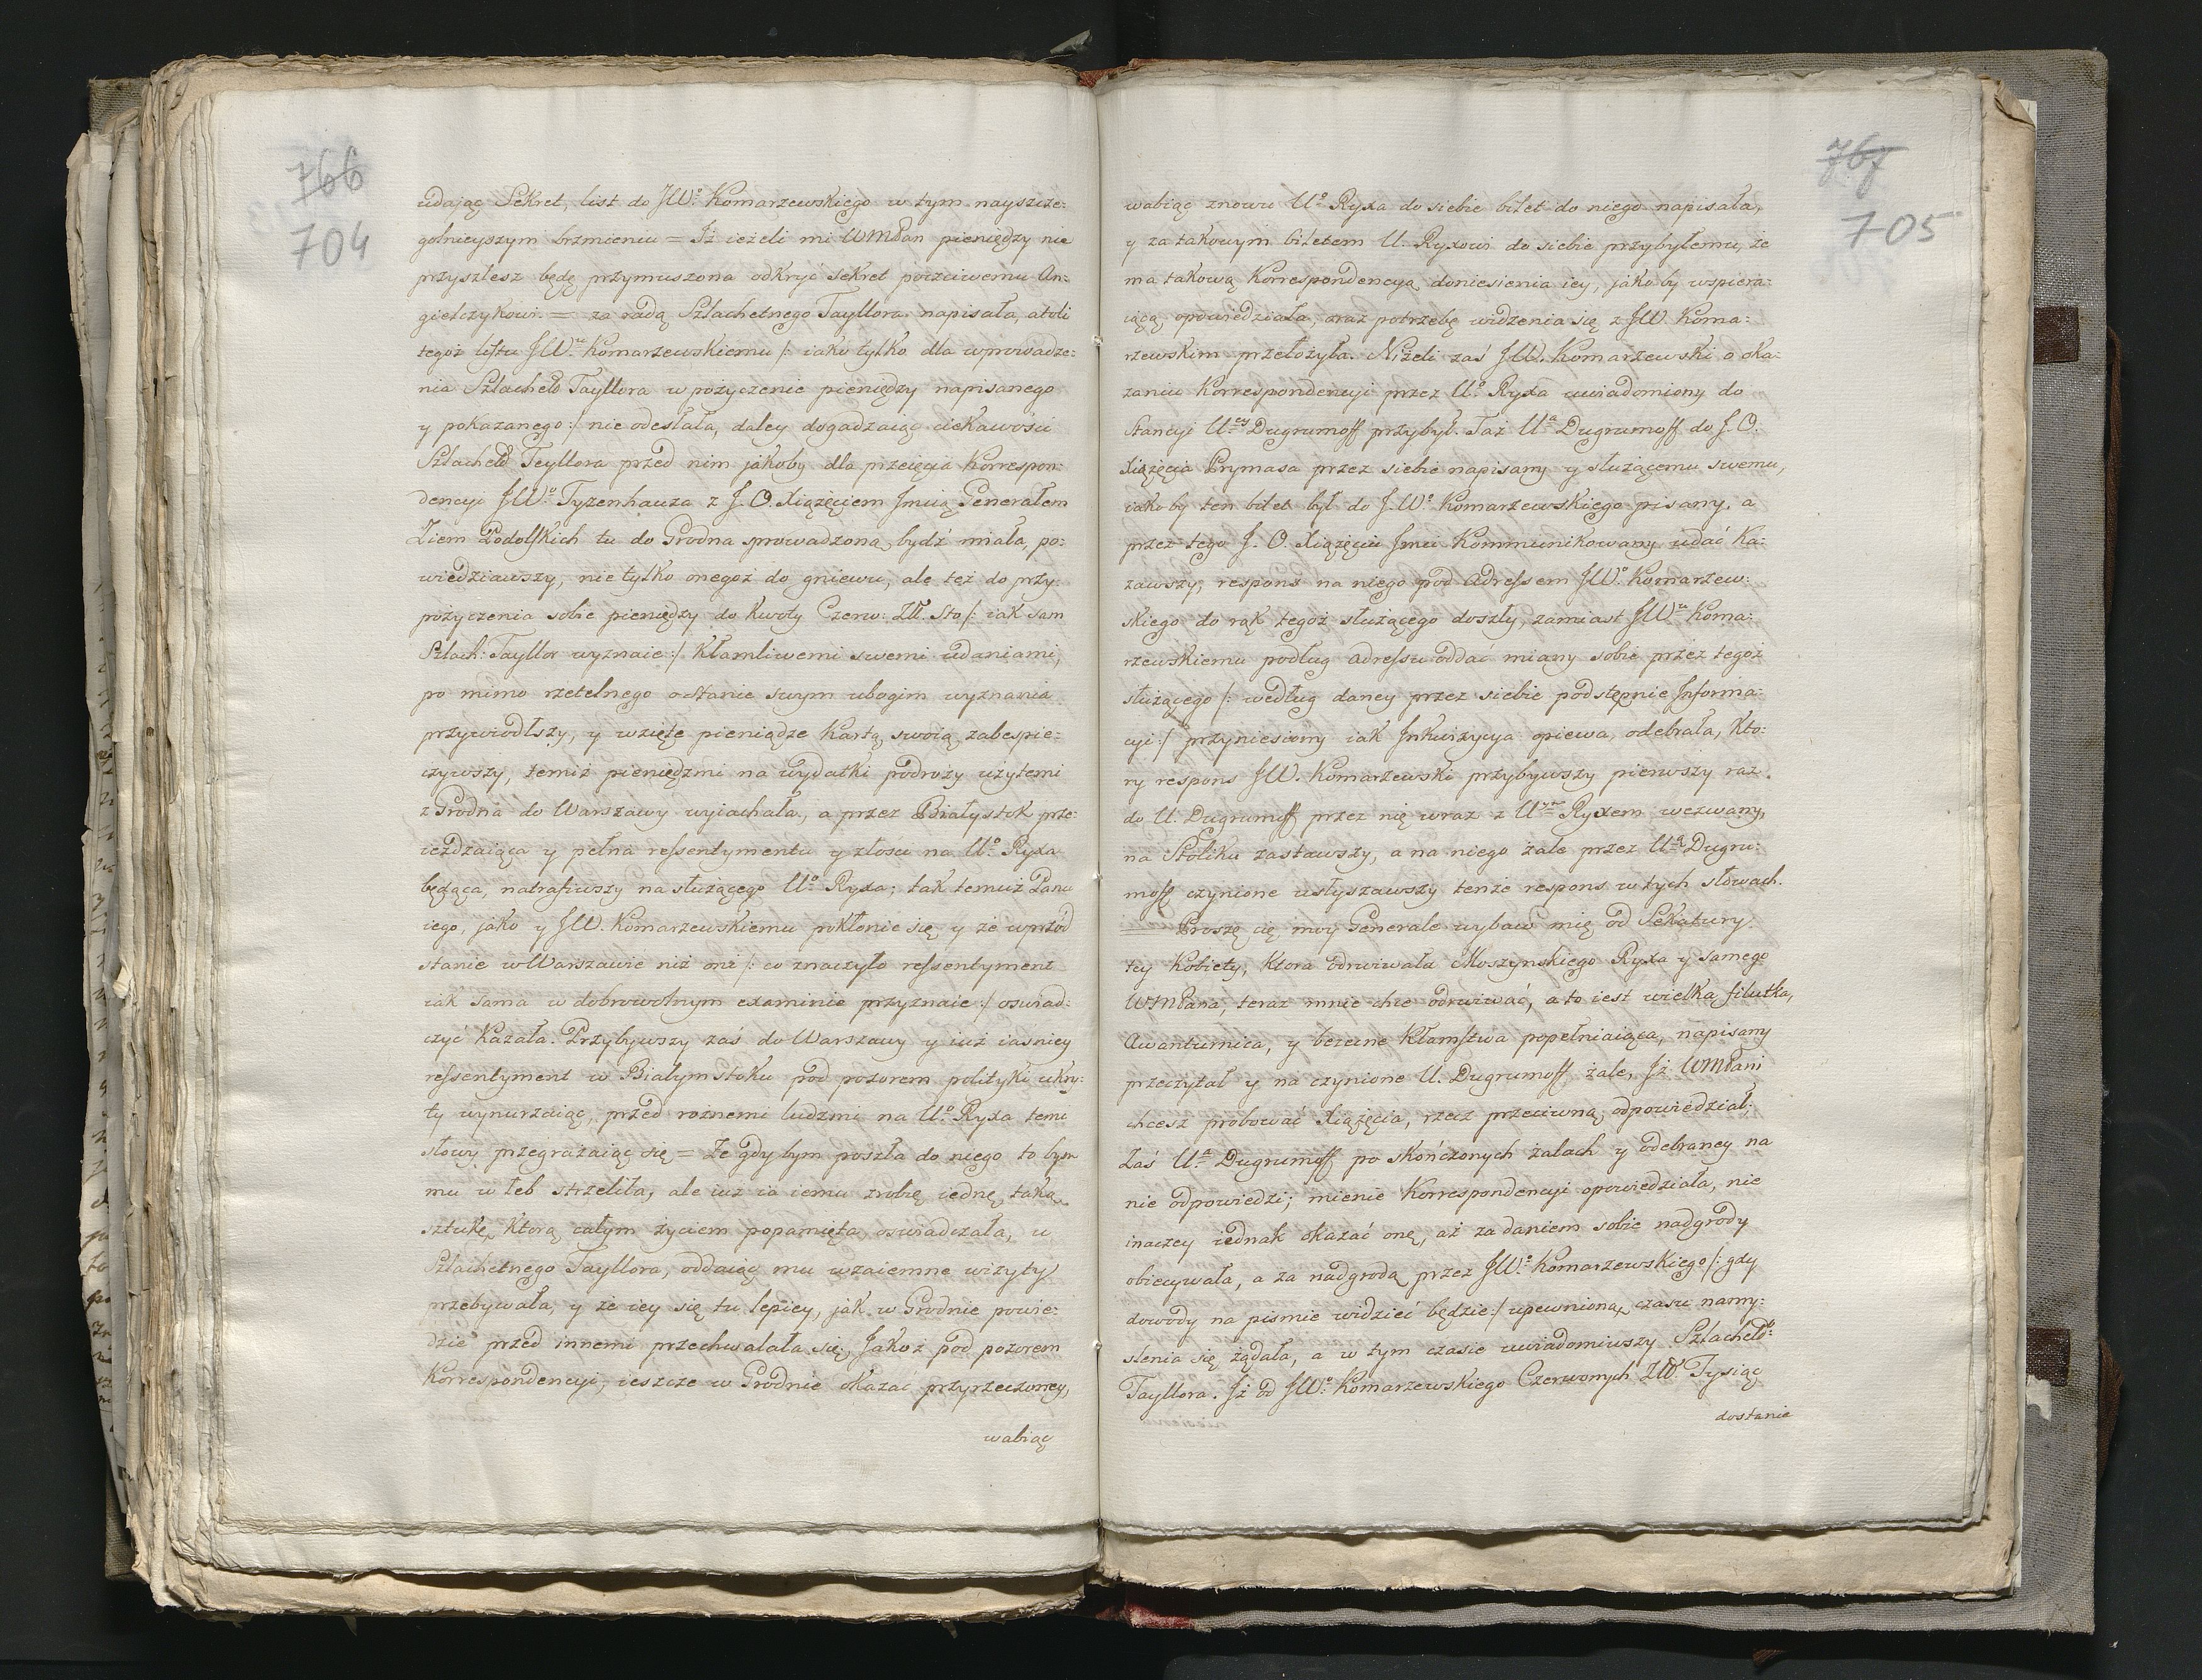 766
704
udając Sekret, list do JWo. Komarzewskiego w tym nayszcze:
golnieyszym brzmieniu = Iż ieżeli mi WMPan pieniędzy nie
przyszlesz będę przymuszona odkryć sekret poczciwemu An:
gielczykowi. = za radą Szlachetnego Tayllora napisała, atoli
tegoż listu JWu Komarzewskiemu /: iako tylko dla wprowadze:
nia Szlachetō Tayllora w pożyczenie pieniędzy napisanego
y pokazanego :/ nie odesłała, daley dogadzaiąc ciekawości
Szlachetō Teyllora przed nim jakoby dla przeięcia Korrespon:
dencyi JWo Tyzenhauza z J. O. Xiążęciem Jmcią Generałem
Ziem Podolskich tu do Grodna sprowadzoną bydź miała, po:
wiedziawszy, nie tylko onegoż do gniewu, ale też do przy:
pożyczenia sobie pieniędzy do kwoty Czerw: Złł. Sto /: iak sam
Szlach: Tayllor wyznaie :/ Kłamliwemi swemi udaniami,
po mimo rzetelnego o stanie swym ubogim wyznania
przywiodłszy, y wzięte pieniądze Kartą swoią zabespie:
czywszy, temiż pieniędzmi na wydatki podroży użytemi
z Grodna do Warszawy wyiachała, a przez Białystok prze:
ieżdzaiąca y pełna ressentymentu y złosci na Uo Ryxa
będąca, natrafiwszy na służącego Uo Ryxa; tak temuż Panu
iego, jako y JW. Komarzewskiemu pokłonić się y że wprzód
stanie w Warszawie niż oni /: co znaczyło ressentyment
iak sama w dobrowolnym examinie przyznaie :/ oswiad:
czyć kazała. Przybywszy zaś do Warszawy y iuż iasniey
ressentyment w Białymstoku pod pozorem polityki ukry:
ty wynurzaiąc, przed rożnemi ludzmi na Uo Ryxa temi
słowy przegrażaiąc się = Że gdy bym poszła do niego to bym
mu w łeb strzeliła, ale iuż ia iemu zrobię iednę taką
sztukę, ktorą całym życiem popamięta oswiadczała, u
Szlachetnego Tayllora, oddaiąc mu wzaiemne wizyty
przebywała, y że iey się tu lepiey, jak w Grodnie powie:
dzie przed innemi przechwalała się, Jakoż pod pozorem
Korrespondencyi, ieszcze w Grodnie okazać przyrzeczoney,
wabiąc
767
705
wabiąc znowu Uo Ryxa do siebie bilet do niego napisała,
y za takowym biletem U. Ryxowi do siebie przybyłemu, że
ma takową Korrespondencyą doniesienia iey, jakoby wspiera:
iącą opowiedziała, oraz potrzebę widzenia się z JW. Koma:
rzewskim przełożyła. Niżeli zaś JW. Komarzewski o oka:
zaniu Korrespondencyi przez Uo Ryxa uwiadomiony do
Stancyi Uey Dugrumoff przybył. Taż Ua Dugrumoff do J. O.
Xiążęcia Prymasa przez siebie napisany y służącemu swemu,
iakoby ten bilet był do J.Wo Komarzewskiego pisany, a
przez tego J. O. Xiążęciu Jmci Kommunikowany udać ka:
zawszy, respons na niego pod adressem JWo. Komarzew:
skiego do rąk tegoż służącego doszły, zamiast JWu Koma:
rzewskiemu podług adressu oddać miany sobie przez tegoż
służącego /: według daney przez siebie podstępnie Informa:
cyi :/ przyniesiony iak Inkwizycya opiewa, odebrała, Kto:
ry respons JW. Komarzewski przybywszy pierwszy raz
do U. Dugrumoff przez nię wraz z Uym Ryxem wezwany,
na Stoliku zastawszy, a na niego żale przez Uą Dugru:
moff czynione usłyszawszy tenże respons w tych słowach.
Proszę cię moy Generale wybaw mię od Sekatury
tey Kobiety, ktora odrwiwała Moszynskiego Ryxa y samego
WMPana, teraz mnie chce odrwiwać, a to iest wielka filutka,
Awanturnica, y bezecne Kłamstwa popełniaiąca, napisany
przeczytał y na czynione U. Dugrumoff żale, Iż WMPani
chcesz probować Xiążęcia, rzecz przeciwną odpowiedział;
Zaś Ua Dugrumoff po skończonych żalach y odebraney na
nie odpowiedzi; mienie Korrespondencyi opowiedziała, nie
inaczey iednak okazać onę, aż za daniem sobie nadgrody
obiecywała, a za nadgrodą przez JWo. Komarzewskiego /: gdy
dowody na pismie widzieć będzie :/ upewnioną, czasu namy:
slenia się żądała, a w tym czasie uwiadomiwszy Szlachetō:
Tayllora. Iż od JWo. Komarzewskiego Czerwonych Złł. Tysiąc
dostanie